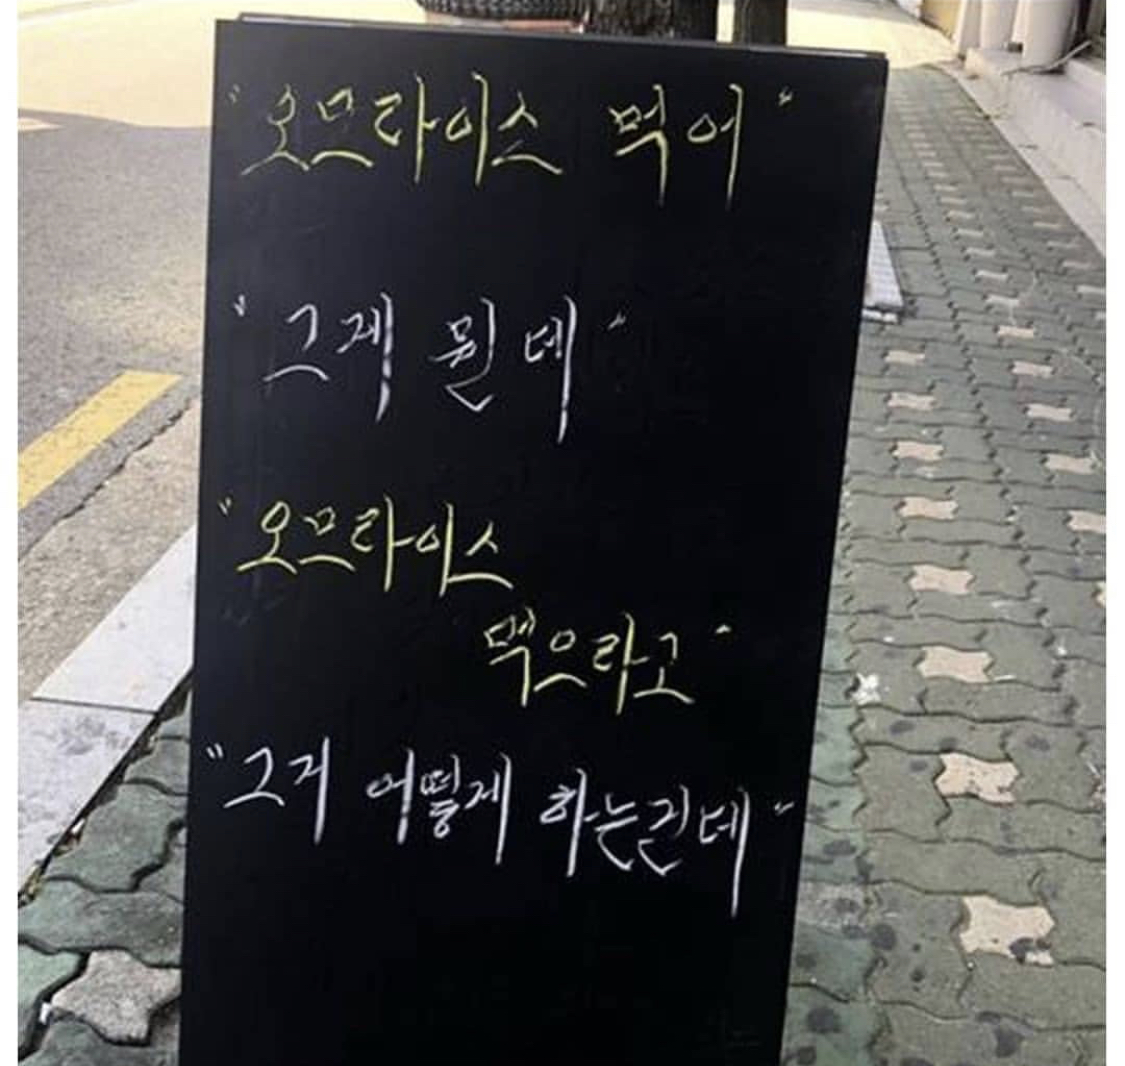 "오므라이스 먹어"
"그게 뭔데"
"오므라이스
먹으라고"
"그거 어떻게 하는건데"